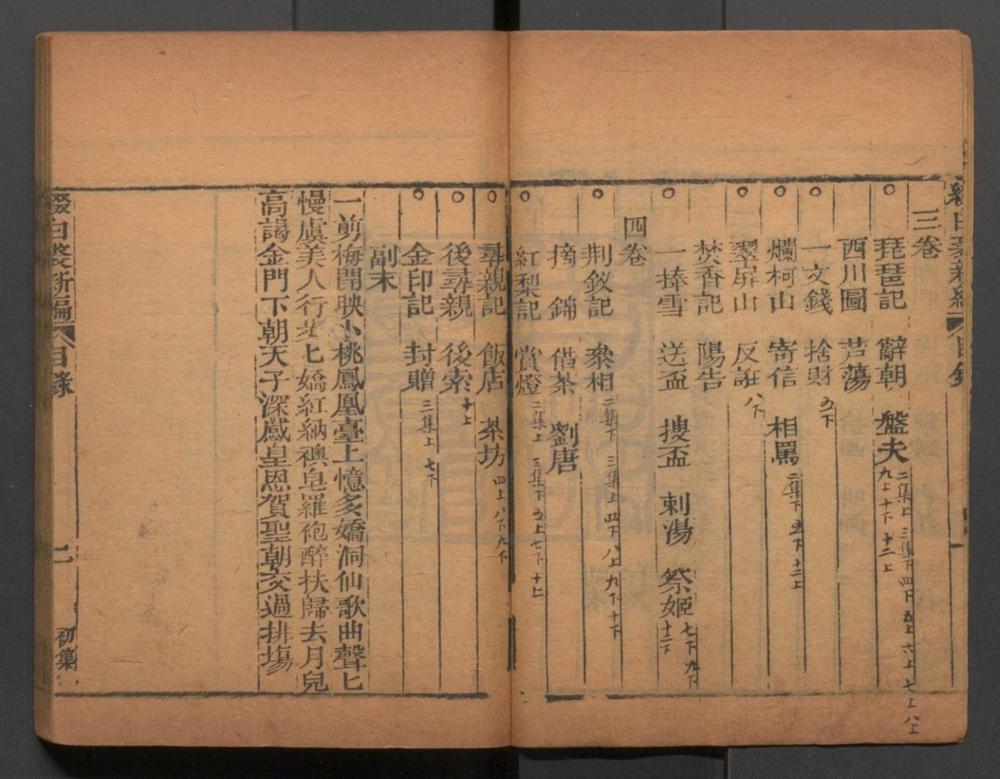 三卷
琵琶記 辭朝 盤夫 二集上 三集下 四下 五上 六上 七上 八上 九上 十下 十二上
西川圖 芦蕩
一文錢 捨財 五下
爛柯山 寄信 相罵 二集下 五下 十二上
翠屏山 反誑 八下
焚香記 陽告
一捧雪 送盃 搜盃 刺湯 祭姬 七下 九下 十二下
四卷
荆釵記 叅相 二集下 三集上 四下 八上 九下 十下
摘錦 借茶 劉唐
紅梨記 賞燈 二集上 三集下 五上 七下 十上
尋親記 飯店 茶坊 四上 八下 九下
後尋親 後索 十上
金印記 封贈 三集上 七下
副末
一剪梅開映小桃鳳凰臺上憶多嬌洞仙歌曲聲匕
慢虞美人行步匕嬌紅納襖皂羅袍醉扶歸去月兒
高謁金門下朝天子深感皇恩賀聖朝交過排塲
綴白裘新編 目錄 七 初集